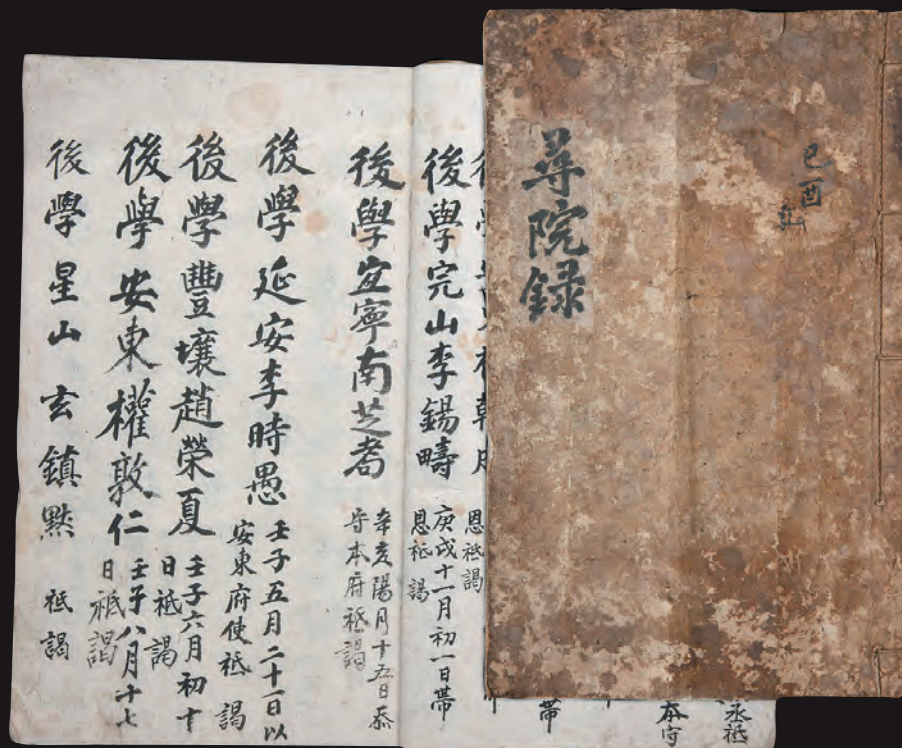 己酉
尋院録
丞祗
帶
恩祗謁
後學完山李錫疇
庚戌十一月初一日帶
恩祗謁
後學宜寧南芝耉
辛亥陽月十五日忝
守本府祗謁
後學延安李時愚
壬子五月二十一日以
安東府使祗謁
後學豊壤趙榮夏
壬子六月初十
日祗謁
後學安東權敦仁
壬子八月十七
日祗謁
後學星山玄鎮黙
祗謁